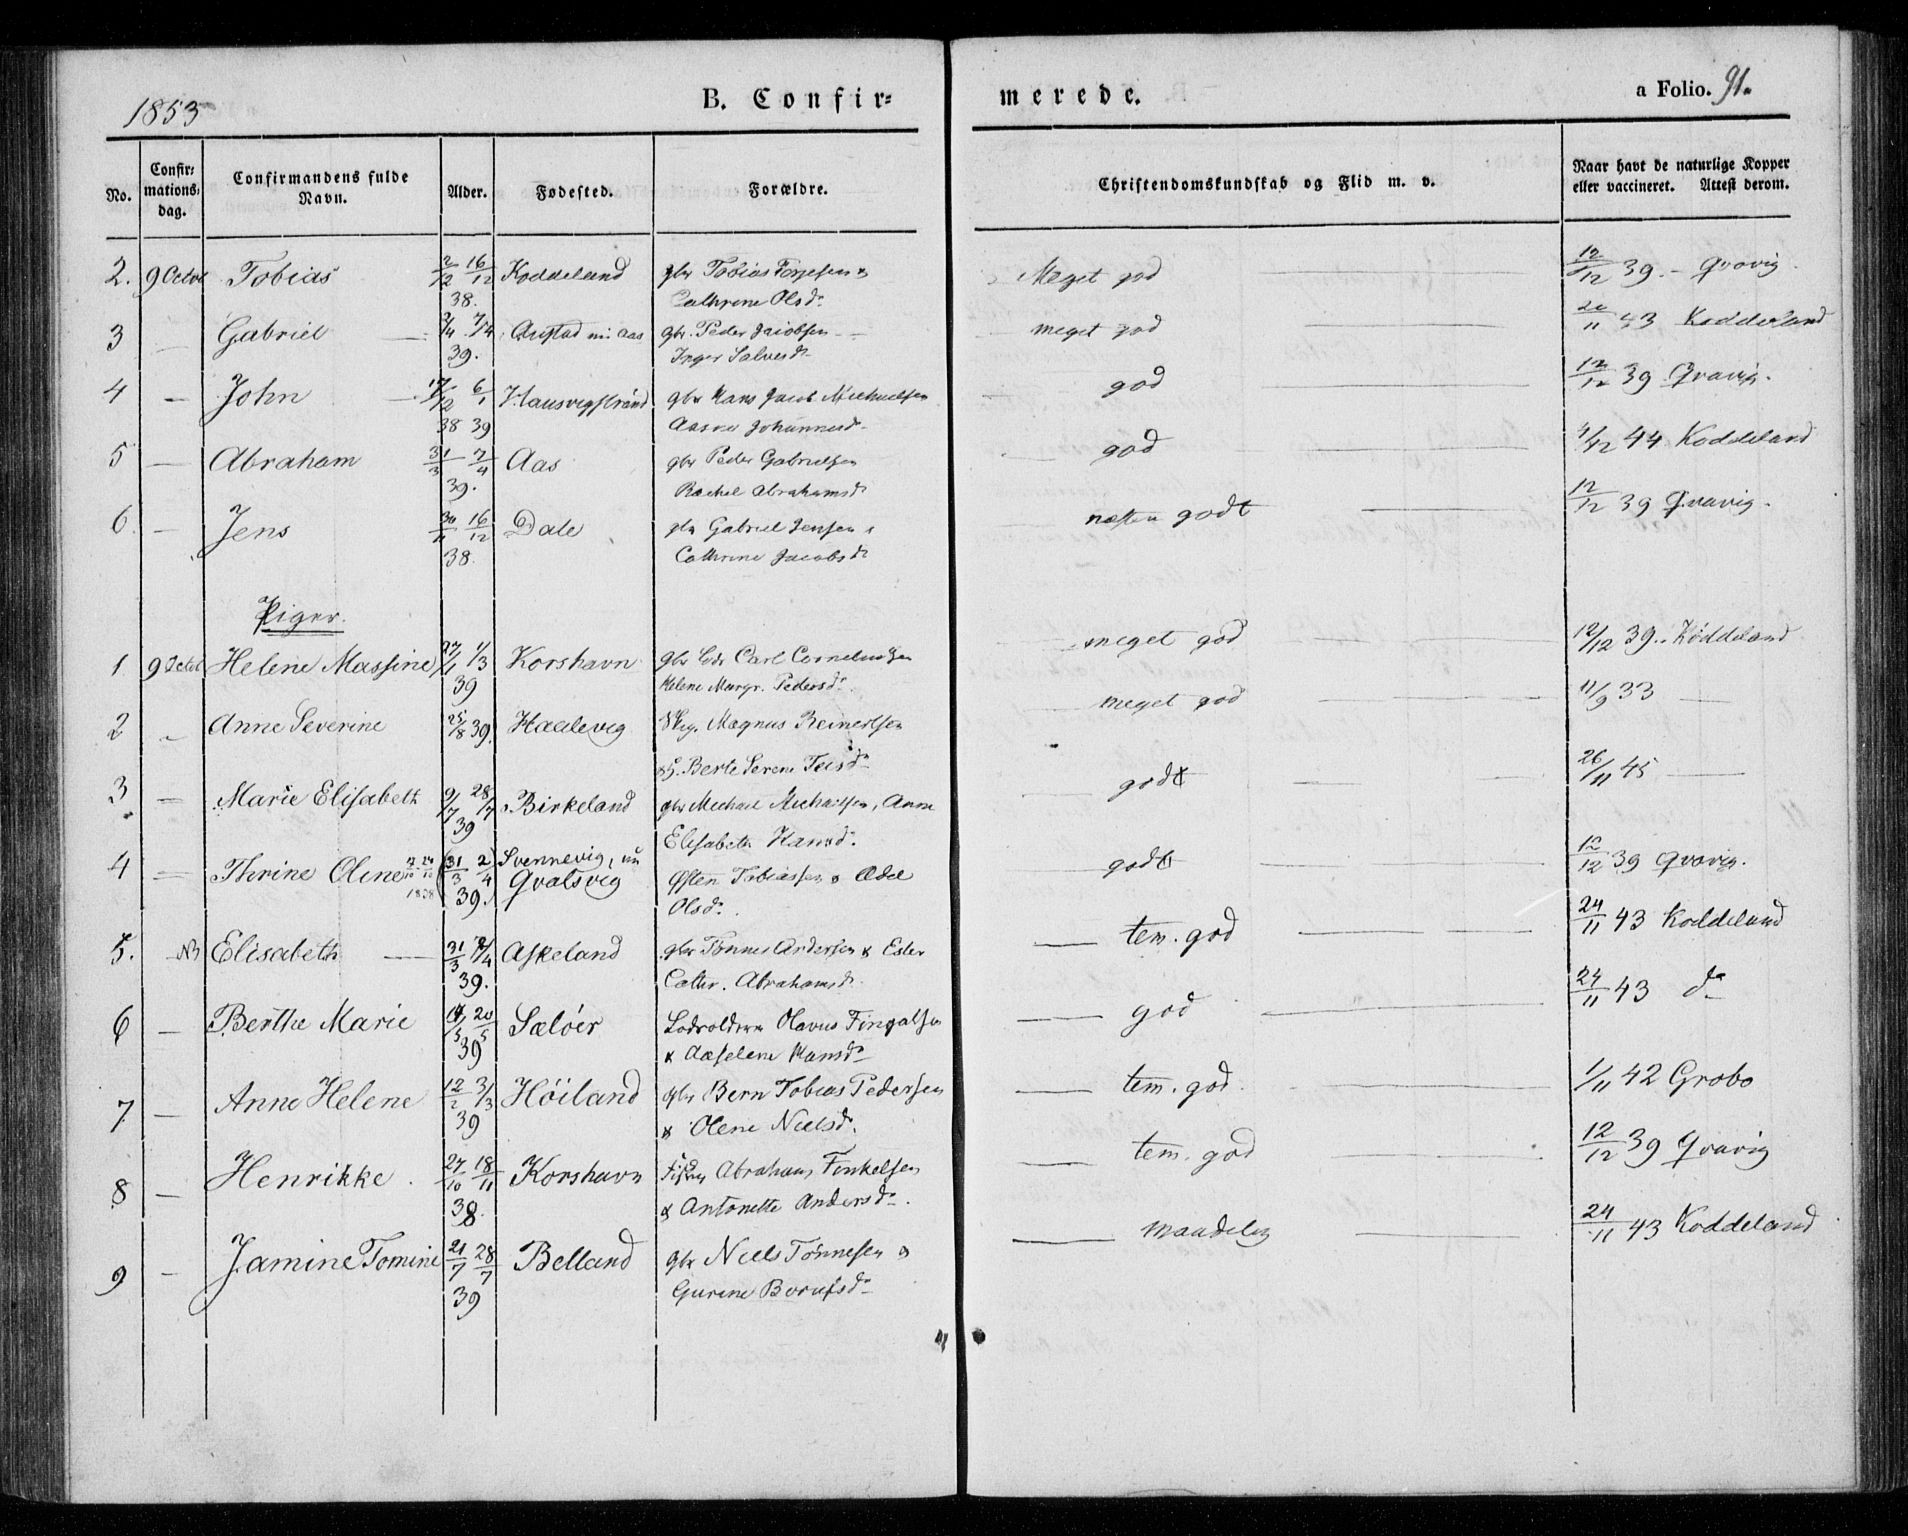 1853
B. Confir=
merede.
a Folio. 91.
No.
Confir= mations= dag.
Confirmandens fulde Navn.
Alder.
Fødested.
Forældre.
Christendomskundskab og Flid m. v.
Naar havt de naturlige Kopper eller vaccineret. Attest derom.
2. 9 Octbr Tobias 2/12 16/12 Koddeland gbr Tobias Torjesen & Meget god 12/12 39. - Qvavig.
38. Cathrine Olsdr
3 — Gabriel 2/4 7/4 Augstad nu Aas gbr. Peder Jacobsen meget god 11 43 Koddeland
39. Inger Salvesdr
4 — John 17/12 6/1 Hausvigstrand gbr Hans Jacob Michaelsen god 12/12 39 Qvavig.
38 39 Aasne Johannesdr
5 — Abraham 31/3 7/4 Aas gbr Peder Gabrielsen god 4/12 44 Koddeland
39. Rachel Abrahamsdr
6 — Jens 30/11 16/12 Dale gbr Gabriel Jensen & næsten godt 12/12 39 Qvavig.
38. Cathrine Jacobsdr
Piger.
1 9 Octbr Helene Massine 27/1 1/3 Korshavn gbr Carl Corneliussen meget god 12/12 39.. Koddeland
39 Helene Margr. Pedersdr.
2 „ Anne Severine 25/8 39. Haalevig Magnus Reinertsen meget god 11/9 33 —
Berte Serene Teisdr
3 — Marie Elisabeth 9/7 28/7 Birkeland gbr Michael Michaelsen, Anne godt 26/11 45 —
39 Elisabeth Hansdr.
4 — Thrine Oline (31/3 2/4 Svennevig, nu godt 12/12 39 Qvavig.
1838 39.) Qvalsvig Østen Tobiassen & Ædel
Olsdr.
5. — NB Elisabeth — 31/3 7/4 Askeland gbr Tønnes Andersen & Ester — tem. god 24/11 43 Koddeland
39. Cathr. Abrahamsdr
6 — Berthe Marie 20/5 Sæløer Lodsoldermd Olavus Fingalsen — god 24/11 43 do
39 & Aaselene Hansdr
7 — Anne Helene 12/2 31/3 Høiland gbr Bern Tobias Pedersen — tem. god 1/11 42 Grobo
39 & Olene Nielsdr.
8 — Henrikke. 27/10 18/11 Korshavn Abraham Finkelsen — tem. god 12/12 39 Qvavig
38. & Antonette Andersdr.
9 — Jamine Tomine 21/7 28/7 Belland gbr Niels Tønnesen & — maadelig 24/11 43 Koddeland
39 Gurine Borufsdr